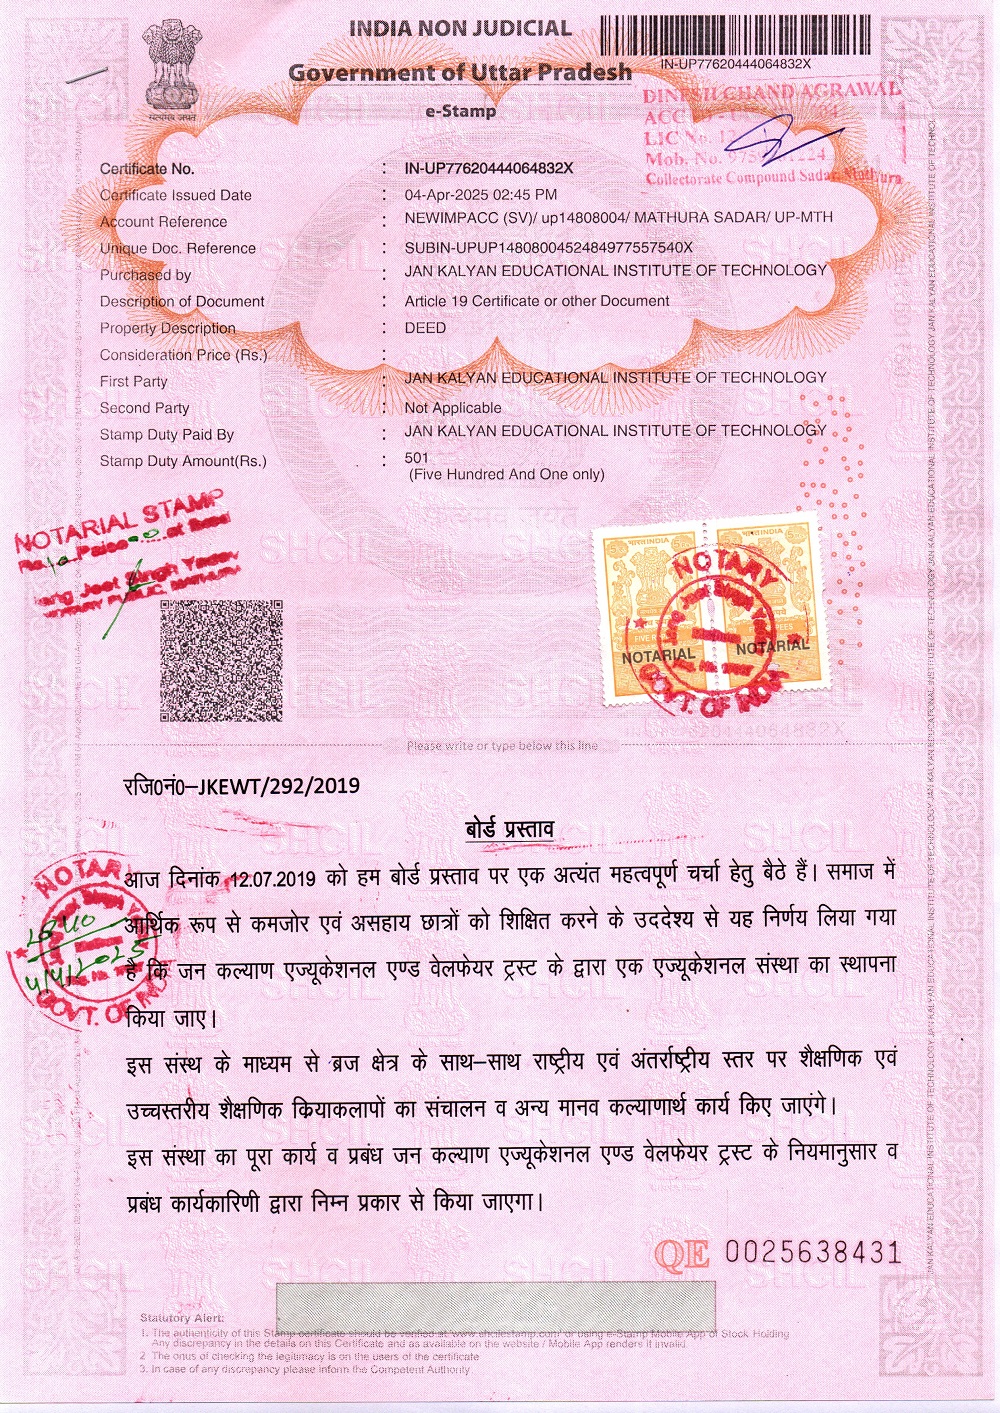 INDIA NON JUDICIAL
IN-UP77620444064832X
Government of Uttar Pradesh
e-Stamp
सत्यमेव जयते
DINESH CHAND AGRAWAL
ACC
LIC No.
Mob. No.
Collectorate Compound Sadar Mathura
Certificate No. : IN-UP77620444064832X
Certificate Issued Date : 04-Apr-2025 02:45 PM
Account Reference : NEWIMPACC (SV)/ up14808004/ MATHURA SADAR/ UP-MTH
Unique Doc. Reference : SUBIN-UPUP1480800452484977557540X
Purchased by : JAN KALYAN EDUCATIONAL INSTITUTE OF TECHNOLOGY
Description of Document : Article 19 Certificate or other Document
Property Description : DEED
Consideration Price (Rs.) :
First Party : JAN KALYAN EDUCATIONAL INSTITUTE OF TECHNOLOGY
Second Party : Not Applicable
Stamp Duty Paid By : JAN KALYAN EDUCATIONAL INSTITUTE OF TECHNOLOGY
Stamp Duty Amount(Rs.) : 501
(Five Hundred And One only)
NOTARIAL STAMP
Jeet Singh Yadav
NOTARY PUBLIC, MATHURA
भारत INDIA
भारत INDIA
NOTARY
NOTARIAL
NOTARIAL
GOVT. OF INDIA
Please write or type below this line
रजि0नं0–JKEWT/292/2019
बोर्ड प्रस्ताव
आज दिनांक 12.07.2019 को हम बोर्ड प्रस्ताव पर एक अत्यंत महत्वपूर्ण चर्चा हेतु बैठे हैं। समाज में
आर्थिक रूप से कमजोर एवं असहाय छात्रों को शिक्षित करने के उददेश्य से यह निर्णय लिया गया
है कि जन कल्याण एज्यूकेशनल एण्ड वेलफेयर ट्रस्ट के द्वारा एक एज्यूकेशनल संस्था का स्थापना
किया जाए।
इस संस्थ के माध्यम से ब्रज क्षेत्र के साथ–साथ राष्ट्रीय एवं अंतर्राष्ट्रीय स्तर पर शैक्षणिक एवं
उच्चस्तरीय शैक्षणिक क्रियाकलापों का संचालन व अन्य मानव कल्याणार्थ कार्य किए जाएंगे।
इस संस्था का पूरा कार्य व प्रबंध जन कल्याण एज्यूकेशनल एण्ड वेलफेयर ट्रस्ट के नियमानुसार व
प्रबंध कार्यकारिणी द्वारा निम्न प्रकार से किया जाएगा।
NOTARY
4/4/2025
GOVT. OF INDIA
QE 0025638431
Statutory Alert:
1. The authenticity of this Stamp certificate should be verified at 'www.shcilestamp.com' or using e-Stamp Mobile App of Stock Holding
Any discrepancy in the details on this Certificate and as available on the website / Mobile App renders it invalid.
2. The onus of checking the legitimacy is on the users of the certificate
3. In case of any discrepancy please inform the Competent Authority.